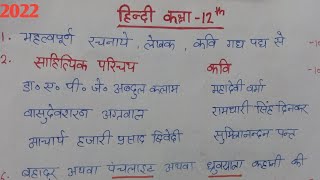 2022
हिन्दी कक्षा -12th
1. महत्वपूर्ण रचनाये, लेखक, कवि गद्य पद्य से
2. साहित्यिक परिचय कवि
डा० ए० पी० जे० अब्दुल कलाम महादेवी वर्मा
वासुदेवशरण अग्रवाल रामधारी सिंह दिनकर
आचार्य हजारी प्रसाद द्विवेदी सुमित्रानन्दन पन्त
बहादुर अथवा पंचलाइट अथवा ध्रुवयात्रा कहानी की